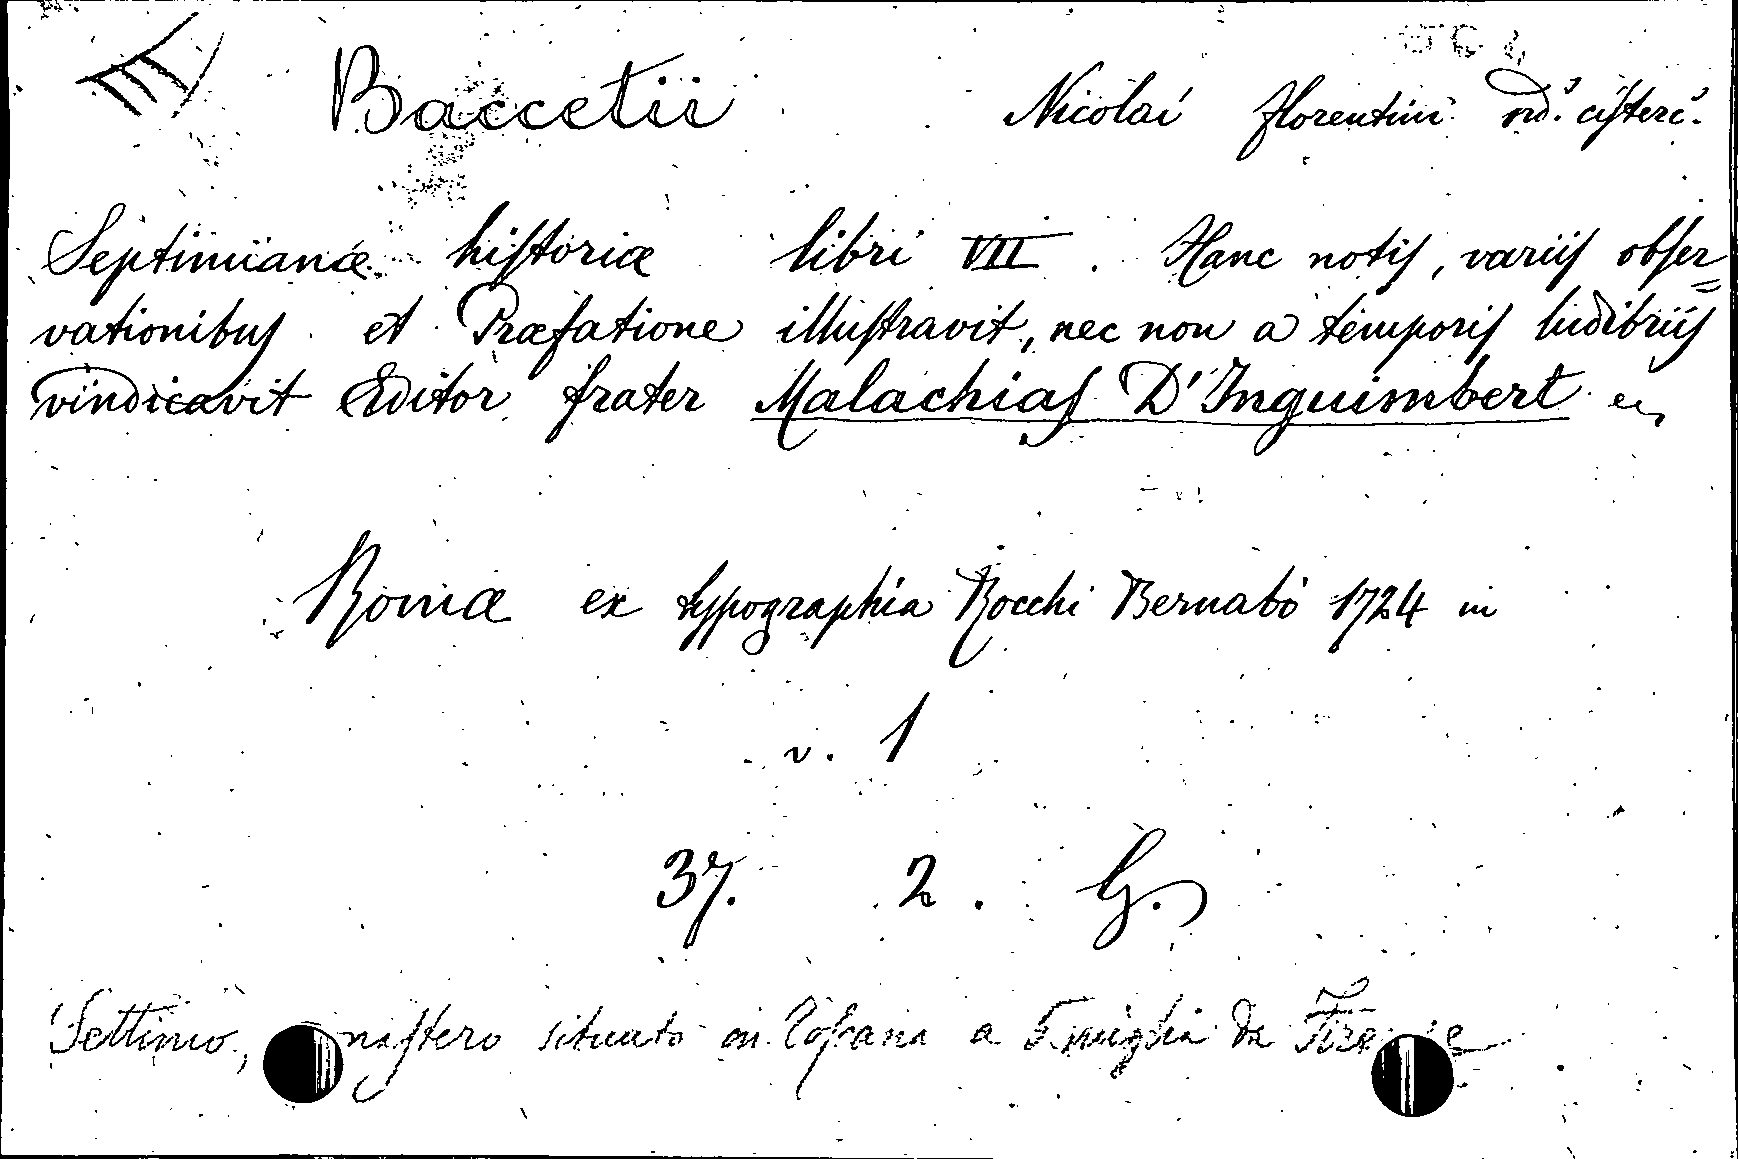 Baccetii Nicolai florentini ord. cisterc.
Septimianæ historiæ libri VII. Hanc notis, variis obser=
vationibus et Præfatione illustravit, nec non a temporis ludibriis
vindicavit Editor frater Malachias D'Inguimbert
Romæ ex typographia Rocchi Bernabò 1724 in
v. 1
37. 2. G.
Settimo, situato in Toscana a 5 miglia da